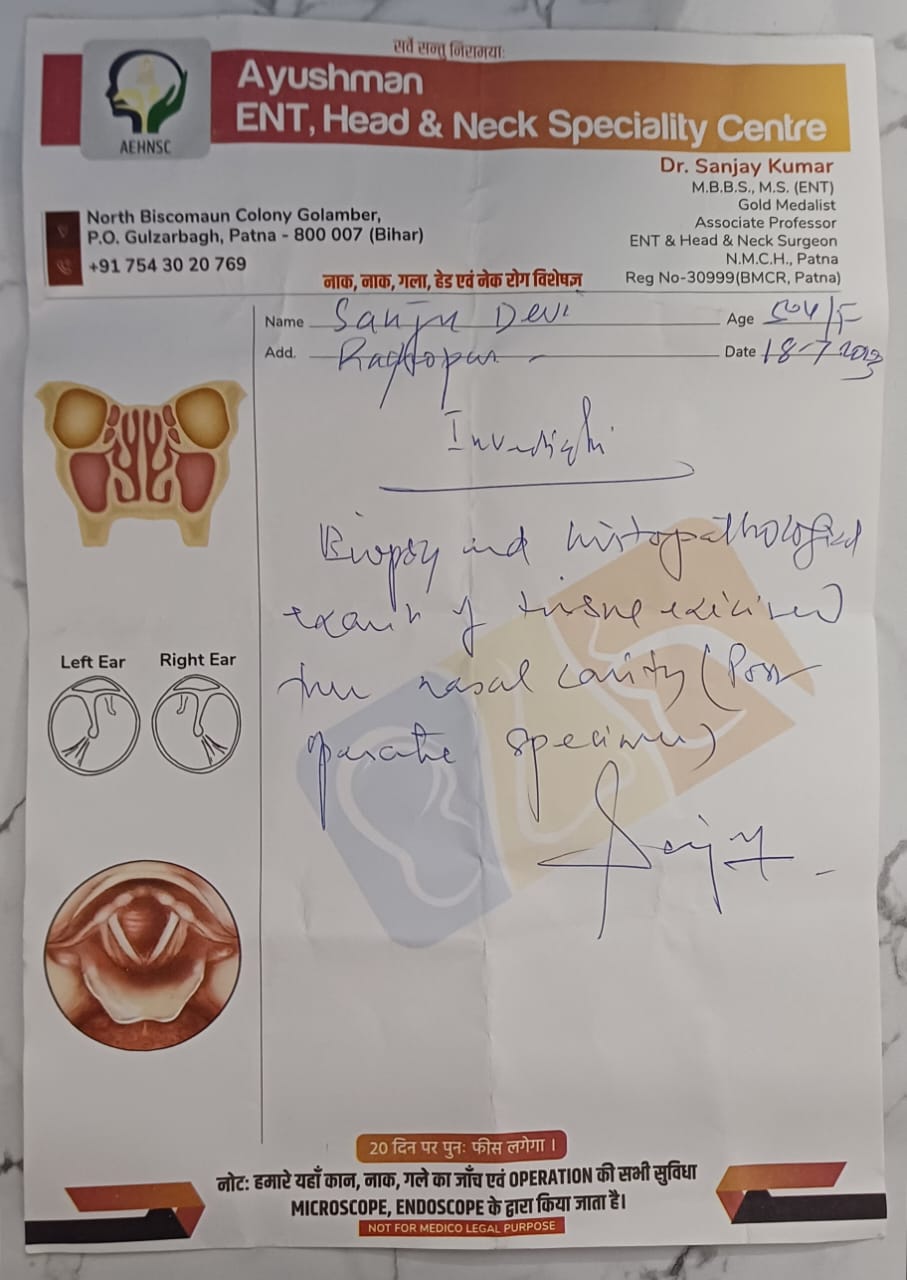 सर्वे सन्तु निरामयाः
AEHNSC
Ayushman
ENT, Head & Neck Speciality Centre
Dr. Sanjay Kumar
M.B.B.S., M.S. (ENT)
Gold Medalist
Associate Professor
ENT & Head & Neck Surgeon
N.M.C.H., Patna
Reg No-30999(BMCR, Patna)
North Biscomaun Colony Golamber,
P.O. Gulzarbagh, Patna - 800 007 (Bihar)
+91 754 30 20 769
नाक, नाक, गला, हेड एवं नेक रोग विशेषज्ञ
Name Sanju Devi Age 50y/F
Add. Date 18-7 2023
Biopsy and histopathological
of tissue excised
nasal cavity (Post
operative specimen)
Left Ear Right Ear
20 दिन पर पुनः फीस लगेगा ।
नोट: हमारे यहाँ कान, नाक, गले का जाँच एवं OPERATION की सभी सुविधा
MICROSCOPE, ENDOSCOPE के द्वारा किया जाता है।
NOT FOR MEDICO LEGAL PURPOSE